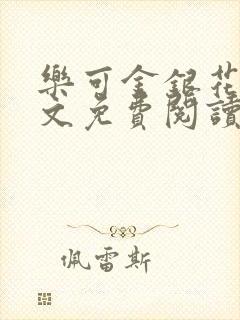 樂可金銀花
文免費閱讀
佩雷斯